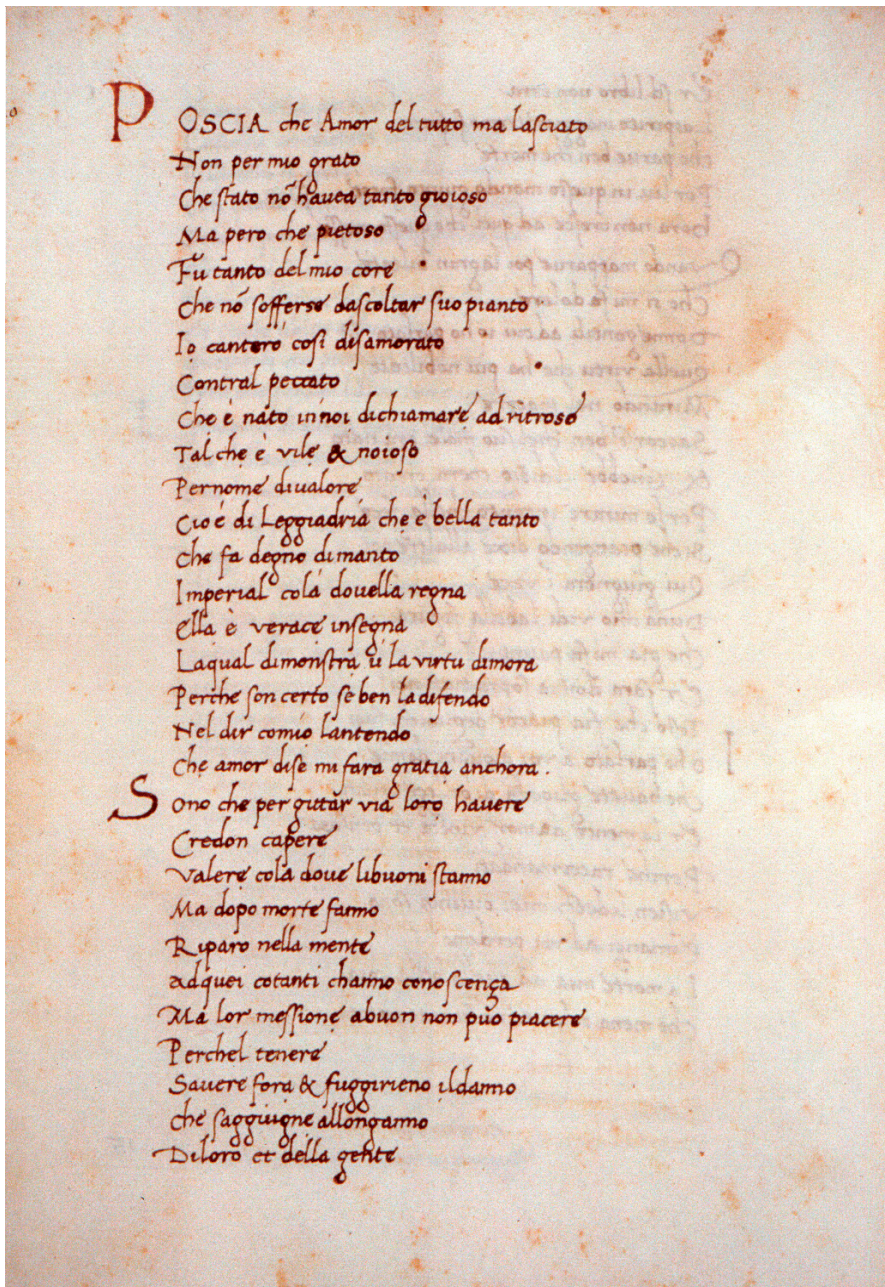 POSCIA che Amor del tutto ma lasciato
Non per mio grato
Che stato nō havea tanto gioioso
Ma pero che pietoso
Fu tanto del mio core
Che nō sofferse dascoltar suo pianto
Io canterò così disamorato
Contral peccato
Che è nato in noi di chiamare ad ritroso
Tal che è vile & noioso
Per nome di valore
Cio è di Leggiadria che è bella tanto
Che fa degno di manto
Imperial colà dovella regna
Ella è verace insegna
Laqual dimonstra ù la virtu dimora
Perche son certo se ben la difendo
Nel dir comio lantendo
Che amor di se mi fara gratia anchora.
Sono che per gittar via loro havere
Credon capere
Valere cola dove li buoni stanno
Ma dopo morte fanno
Riparo nella mente
Ad quei cotanti channo conoscença
Ma lor messione a buon non può piacere
Perchel tenere
Savere fora & fuggirieno il danno
Che saggiugne allonganno
Di loro et della gente